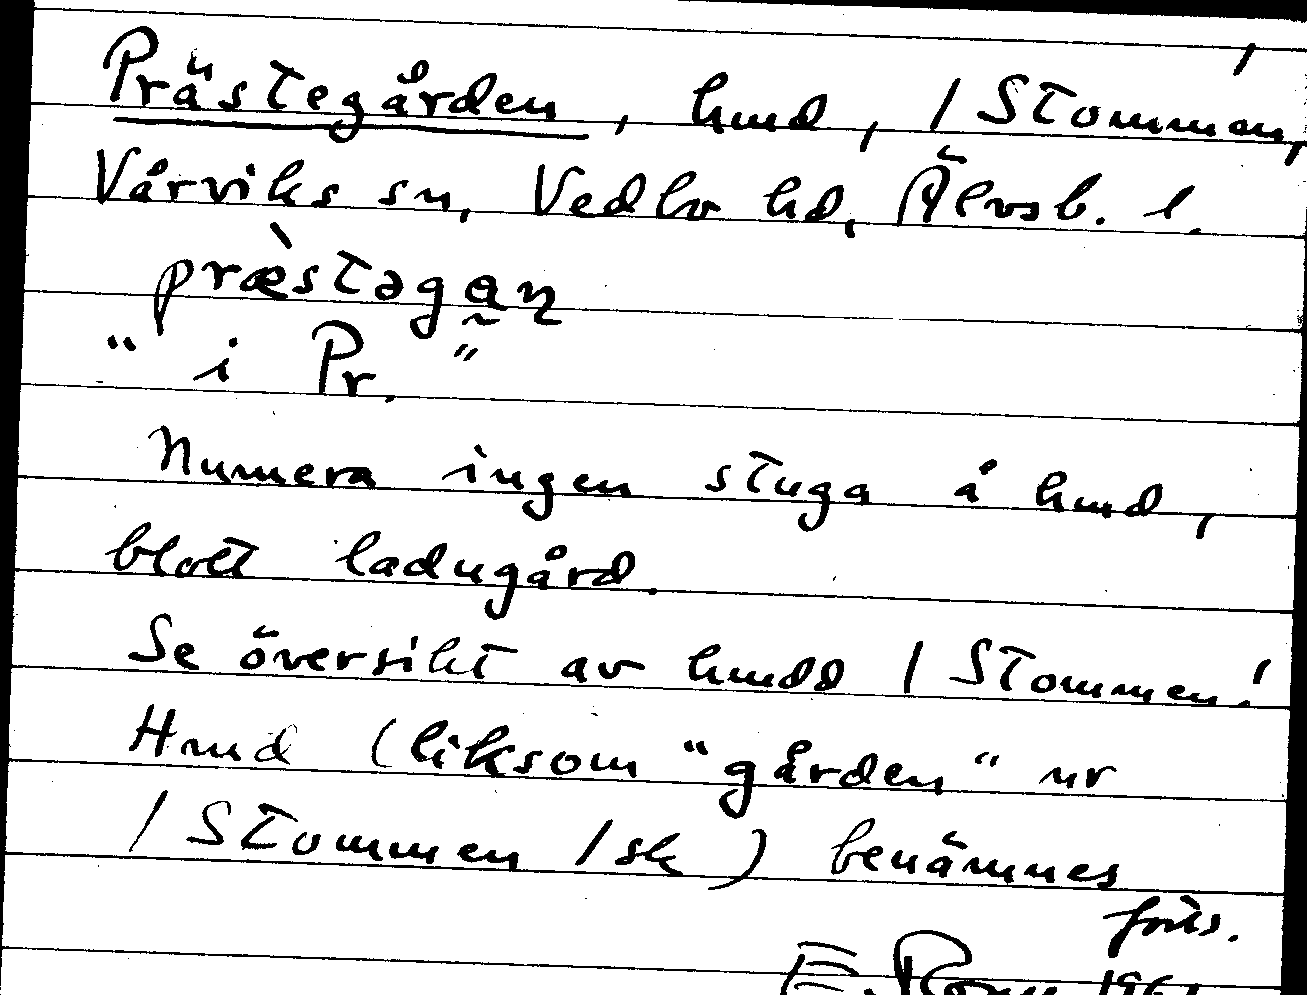 Prästegården, hmd, /Stommen,
Vårviks sn, Vedbo hd, Älvsb. l.
præ̀stəgan
"i Pr."
Numera ingen stuga å hmd,
blott ladugård.
Se översikt av hmdd /Stommen!
Hmd (liksom "gården" ur
/Stommen /sk) benämnes
forts.